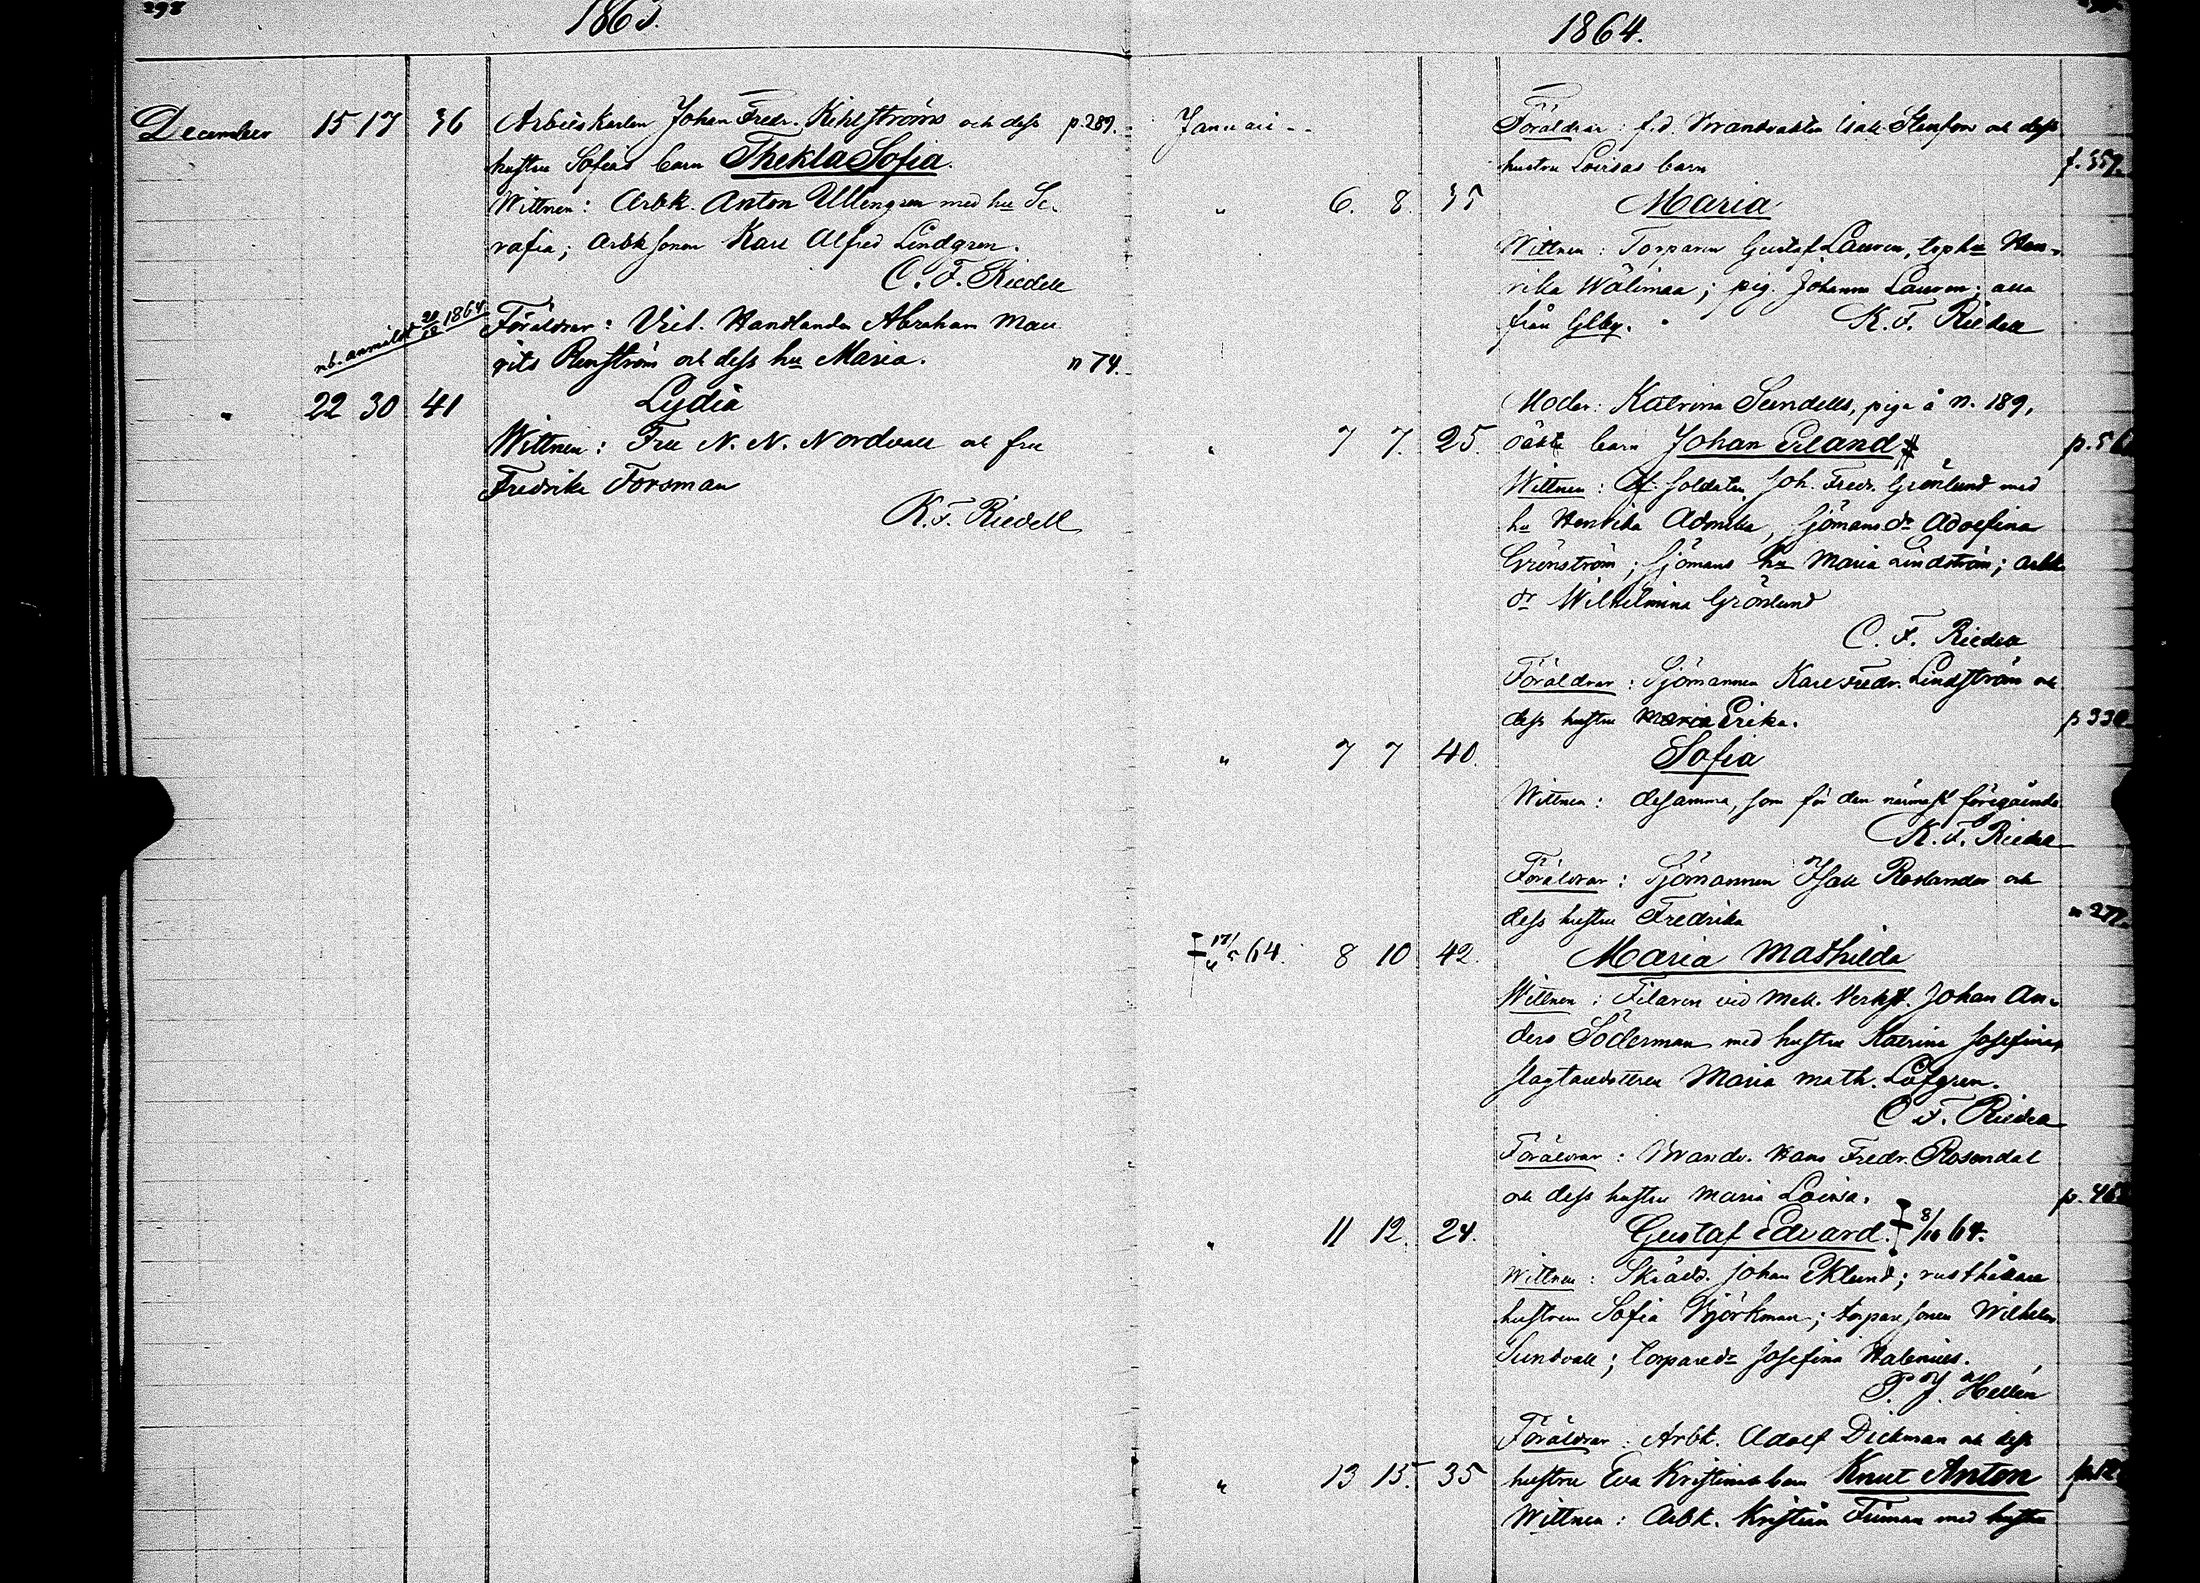 298
1863.
December 15 17 36 Arbetskarlen Johan Fredr. Kihlströms och dess p. 289.
hustru Sofias barn Thekla Sofia.
Wittnen: Arbk. Anton Ullengren med hu Se-
rafia; Arbk sonen Karl Alfred Lindgren.
C. F. Riedell
nb. anmäldt 1864
Föräldrar: Vict. Handlanden Abraham Mau
rits Renström och dess hu Maria. n 74.
" 22 30 41 Lydia
Wittnen: Fru N. N. Nordvall och fru
Fredrika Forsman
K. F. Riedell
1864.
Januari Föräldrar: f.d. Brandvakten Isak Stenfors och dess
hustru Lovisas barn p. 357.
" 6. 8. 35 Maria
Wittnen: Torparen Gustaf Lauren, torphu Hen-
rika Wälimaa; pig. Johanna Lauren; alla
från Ulby. K. F. Riedell
Moder: Katrina Sundell, piga å n. 189,
" 7 7. 25. oäkta barn Johan Erland p. 56
Wittnen: Af. Soldaten Joh. Fredr. Grönlund med
hu Henrika Admika, Sjömans dr Adolfina
Grönström; Sjömans hu Maria Lindström; arbk
dr Wilhelmina Grönlund
C. F. Riedell
Föräldrar: Sjömannen Karl Fredr. Lindström och
dess hustru Maria Erika. p 330
" 7 7 40. Sofia
Wittnen: desamma, som för den närmast föregående
K. F. Riedell
Föräldrar: Sjömannen Isak Roslander och
dess hustru Fredrika n 277.
17/5 64. 8 10 42. Maria Mathilda
Wittnen: Filaren vid Mek. Verkst. Johan An-
ders Söderman med hustru Katrina Josefina,
slagtaredottren Maria Math. Löfgren.
C F. Riedell
Föräldrar: Brandv. Hans Fredr. Rosendal
och dess hustru Maria Lovisa. p. 46
" 11 12. 24. Gustaf Edvard. 8/10 64.
Wittnen: Skrädd. Johan Eklund; rusthållare
hustrun Sofia Björkman; torpare sonen Wilhelm
Sundvall; Torparedr Josefina Halenius.
P. J. Hellén
Föräldrar: Arbk. Adolf Dickman och dess
" 13 15. 35 hustru Eva Kristinas barn Knut Anton
Wittnen: Arbk. Kristian Friman med hustru